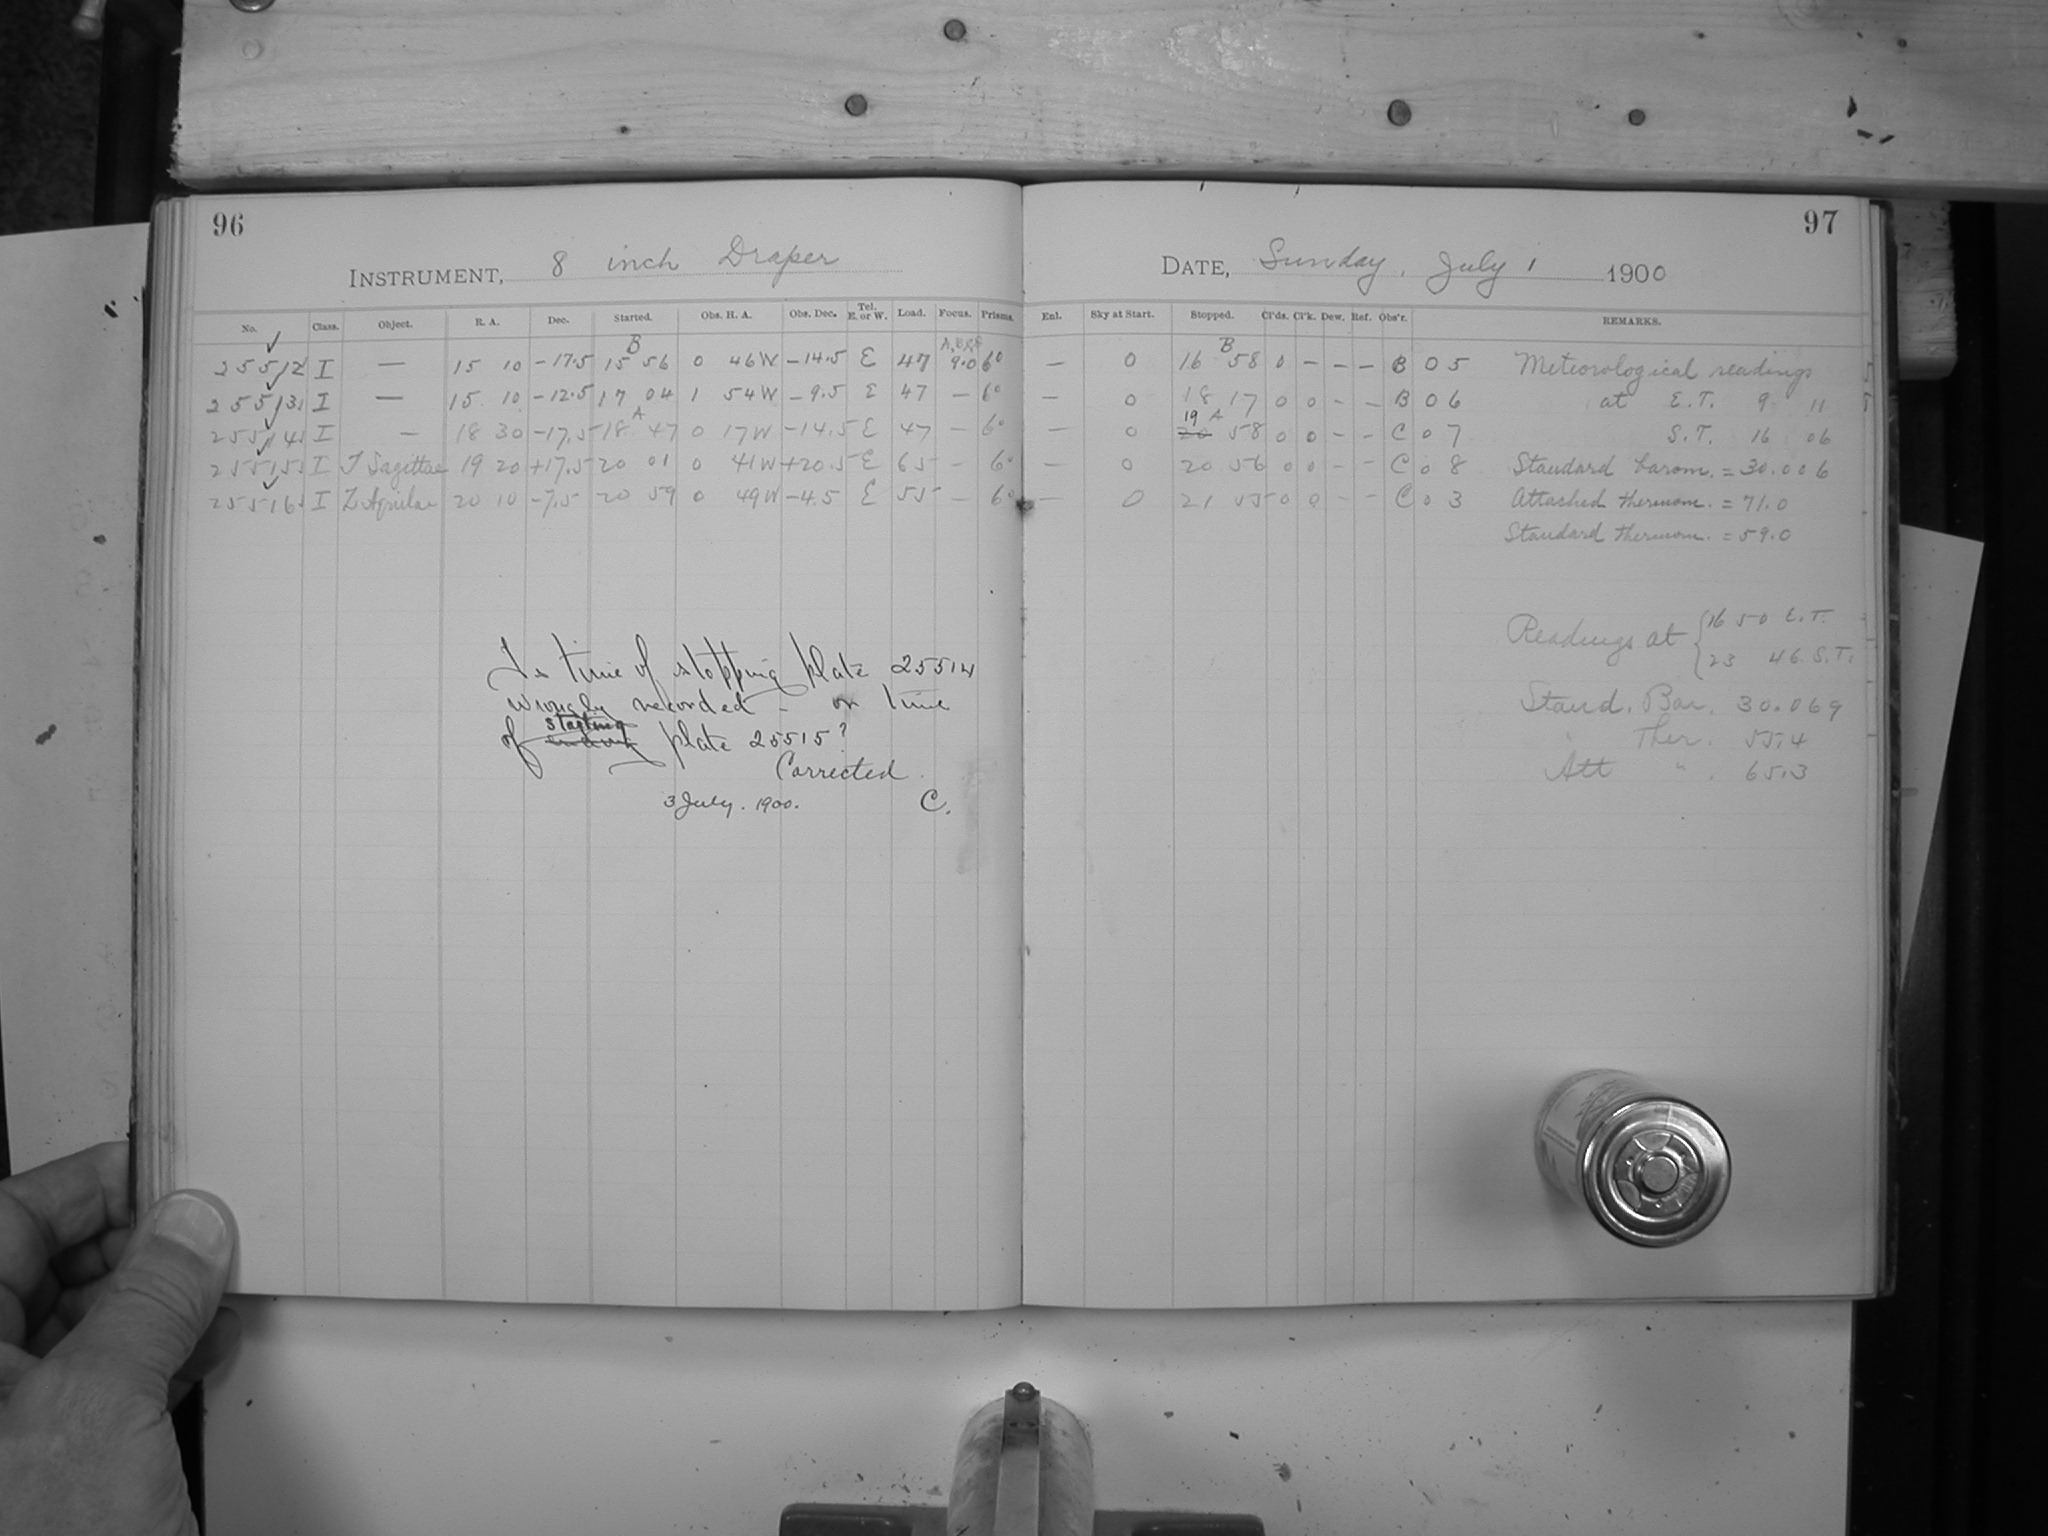 96
INSTRUMENT, 8 inch Draper
No. Class. Object. R. A. Dec. Started. Obs. H. A. Obs. Dec. Tel. E. or W. Load. Focus. Prisms.
B
25512 I — 15 10 -17.5 15 56 0 46W -14.5 E 47 9.0 6°
25513 I — 15 10 -12.5 17 04 1 54W -9.5 E 47 — 6°
A
25514 I — 18 30 -17.5 18 47 0 17W -14.5 E 47 — 6°
25515 I T Sagittae 19 20 +17.5 20 01 0 41W +20.5 E 65 — 6°
25516 I Z Aquilae 20 10 -7.5 20 59 0 49W -4.5 E 55 — 6°
Is time of stopping plate 25514
wrongly recorded - or time
of starting plate 25515?
Corrected
3 July. 1900. C.
97
DATE, Sunday, July 1 1900
Enl. Sky at Start. Stopped. Cl'ds. Cl'k. Dew. Ref. Obs'r. REMARKS.
B
— 0 16 58 0 – – – B 05 Meteorological readings
— 0 18 17 0 0 – – B 06 at E.T. 9 11
19 A
— 0 20 58 0 0 – – C 07 S.T. 16 06
— 0 20 56 0 0 – – C 08 Standard barom. = 30.006
— 0 21 55 0 0 – – C 03 Attached thermom. = 71.0
Standard thermom. = 59.0
Readings at { 16 50 E.T.
23 46 S.T.
Stand. Bar. 30.069
" Ther. 55.4
Att " . 65.3